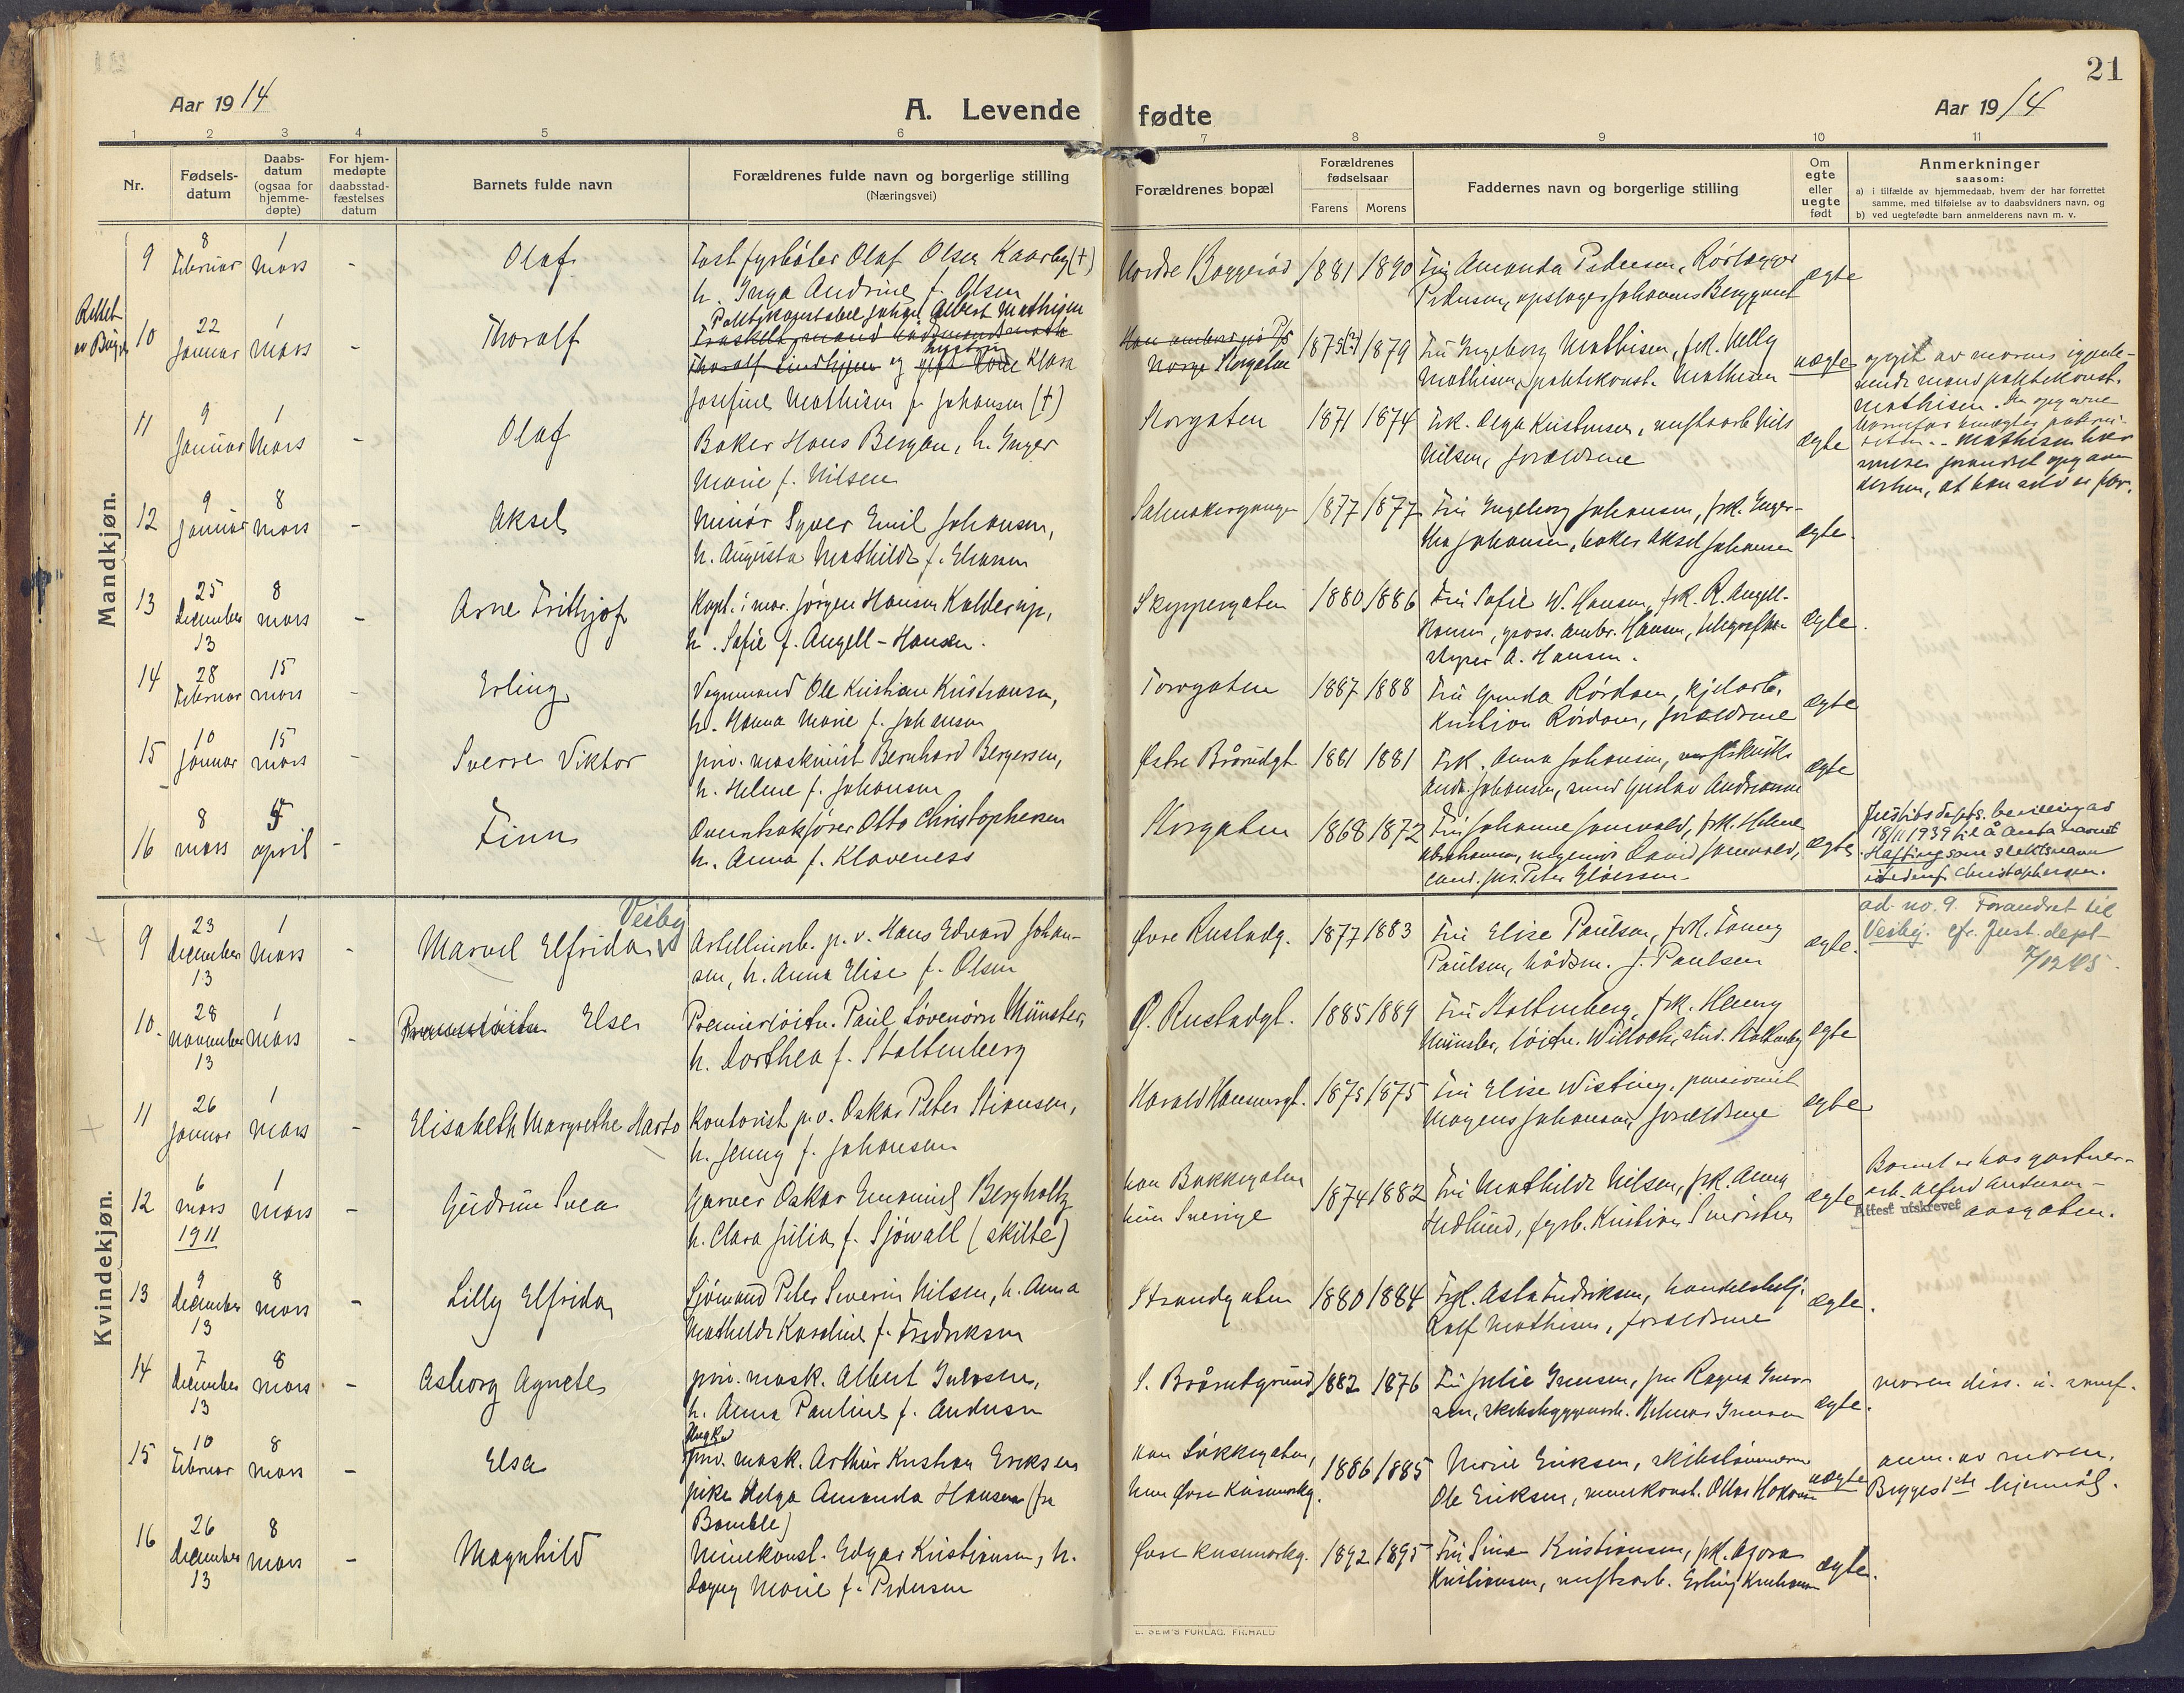 21
Aar 1914
A. Levende fødte
Aar 1914
1 2 3 4 5 6 7 8 9 10 11
Nr.
Fødsels-
datum
Daabs-
datum
(ogsaa for
hjemme-
døpte)
For hjem-
medøpte
daabsstad-
fæstelses
datum
Barnets fulde navn
Forældrenes fulde navn og borgerlige stilling
(Næringsvei)
Forældrenes bopæl
Forældrenes
fødselsaar
Farens Morens
Faddernes navn og borgerlige stilling
Om
egte
eller
uegte
født
Anmerkninger
saasom:
a) i tilfælde av hjemmedaab, hvem der har forrettet
samme, med tilføielse av to daabsvidners navn, og
b) ved uegtefødte barn anmelderens navn m. v.
Mandkjøn.
9 8 Februar 1 Mars - Olaf
Fast fyrbøter Olaf Olsen Kaarby (+)
h. Inga Andrine f. Olsen
Nordre Baggerød 1881 1890
Fru Amanda Pedersen, Rørlægger
Pedersen, Johannes Berggvist
ægte
Rettet
10 22 Januar 1 Mars - Thoralf
Politikonstabel Johan Albert Mathisen
Thoralf Lindhjem og hustru Klara
Josefine Mathisen f. Johansen (+)
Norge Storgaten 1875(?) 1879
Fru Ingeborg Mathisen, frk. Helly
Mathisen, politikonst. Mathisen
uægte
opgit av morens
mand politikonst.
Mathisen.
11 9 Januar 1 Mars - Olaf
Baker Hans Bergan, h. Inger
Marie f. Nilsen
Storgaten 1871 1874
Frk. Olga Kristensen, Nils
Nilsen, forældrene
ægte
12 9 Januar 8 Mars - Aksel
Minør Syver Emil Johansen,
h. Augusta Mathilde f.
1877 1877
Fru Ingeborg Johansen, frk.
Johansen, baker Aksel Johansen
ægte.
13 25 December 13 8 Mars - Arne Frithjof
Kapt. i mar. Jørgen Hansen Kalderup,
h. Sofie f. Angell-Hansen.
Skippergaten 1880 1886
Fru Sofie W. Hansen, frk. R. Angell-
Hansen, gross. Hansen,
A. Hansen.
ægte.
14 28 Februar 15 Mars - Erling
Vognmand Ole Kristian Kristiansen,
h. Hanna Marie f. Johansen
Torvgaten 1887 1888
Fru Gunda Rørdam, kjelarb.
Kristian Rørdam, forældrene
ægte
15 10 Januar 15 Mars - Sverre Viktor
priv. maskinist Bernhard Bergersen,
h. Helene f. Johansen
Østre Brårudgt 1881 1881
Frk. Anna Johansen,
Johansen, smed Gustav Andreassen
ægte
16 8 Mars 5 April - Finn
Overretssakfører Otto Christophersen
h. Anna f. Klaveness
Storgaten 1868 1872
Fru Johanne Jomvold, frk. Helene
Abrahamsen, ingeniør David Jomvold,
cand. jur. Peter
ægte
Justitsdepts. bevilling av
18/11 1939 til å anta navnet
Hafting som slektsnavn
istedenf. Christophersen.
Kvindekjøn.
9 23 December 13 1 Mars - Marvel Elfrida Veiby
Artilleriarb. p.v. Hans Edvard Johan-
sen, h. Anna Elise f. Olsen
Øvre Rustadg. 1877 1883
Fru Elise Paulsen, frk. Fanny
Paulsen, bådsm. J. Paulsen
ægte.
ad. no. 9. Forandret til
Veiby. cfr. Just. dept
7/12 45.
10. 28 November 13 1 Mars - Else
Premierløitn. Paul Løvenørn Münster,
h. Dorthea f. Stoltenberg
Ø. Rustadgt. 1885 1889
Fru Stoltenberg, frk. Henny
Münster, løitn. Willoch, stud. Stoltenberg
ægte
11 26 Januar 1 Mars - Elisabeth Margrethe Marto
Kontorist p.v. Oskar Peter Stiansen,
h. Jenny f. Johansen
Harald Hansensgt. 1875 1875
Fru Elise Wisting, pensionist
Magens Johansen, forældrene
ægte
12 6 Mars 1911 1 Mars - Gudrun Svea
Garver Oskar Emanuel Bergholtz
h. Clara Julia f. Sjöwall (skilte)
han Bakkegaten
hun Sverige 1874 1882
Fru Mathilde Nilsen, frk. Anna
Hedlund, fyrb. Kristian
ægte
Barnet er hos gartner-
arb. Alfred Andersen -
Attest utskrevet Aasgaten.
13 9 December 13 8 Mars - Lilly Elfrida
Sjömand Peter Severin Nilsen, h. Anna
Mathilde Karoline f. Fredriksen
Strandgaten 1880 1884
Frk. Asta Fredriksen, handelsbetj.
Ralf Mathisen, forældrene
ægte.
14 7 December 13 8 Mars - Asborg Agnete
priv. mask. Albert Iversen,
h. Anna Pauline f. Andersen
S. Brårudgrund 1882 1876
Fru Julie Iversen, fru Ragna Iver-
sen, skibsbyggerarb. Hilmar Iversen
ægte.
moren diss. u. samf.
15 10 Februar 8 Mars - Elsa
Ungkar
priv. mask. Arthur Kristian Eriksen
pike Helga Amanda Hansen (fra
Bamble)
han Løkkegaten,
hun Øvre 1886 1885
Marie Eriksen, skibstømmerm.
Ole Eriksen, minekonst. Ottar
uægte
anm. av moren.
Begges 1ste leiermål.
16 26 December 13 8 Mars - Magnhild
Minekonst. Edgar Kristiansen, h.
Dagny Marie f. Pedersen
Øvre 1892 1895
Fru Sina Kristiansen, frk. Agora
Kristiansen, Erling Kristiansen
ægte.
E. SEM'S FORLAG. FR.HALD